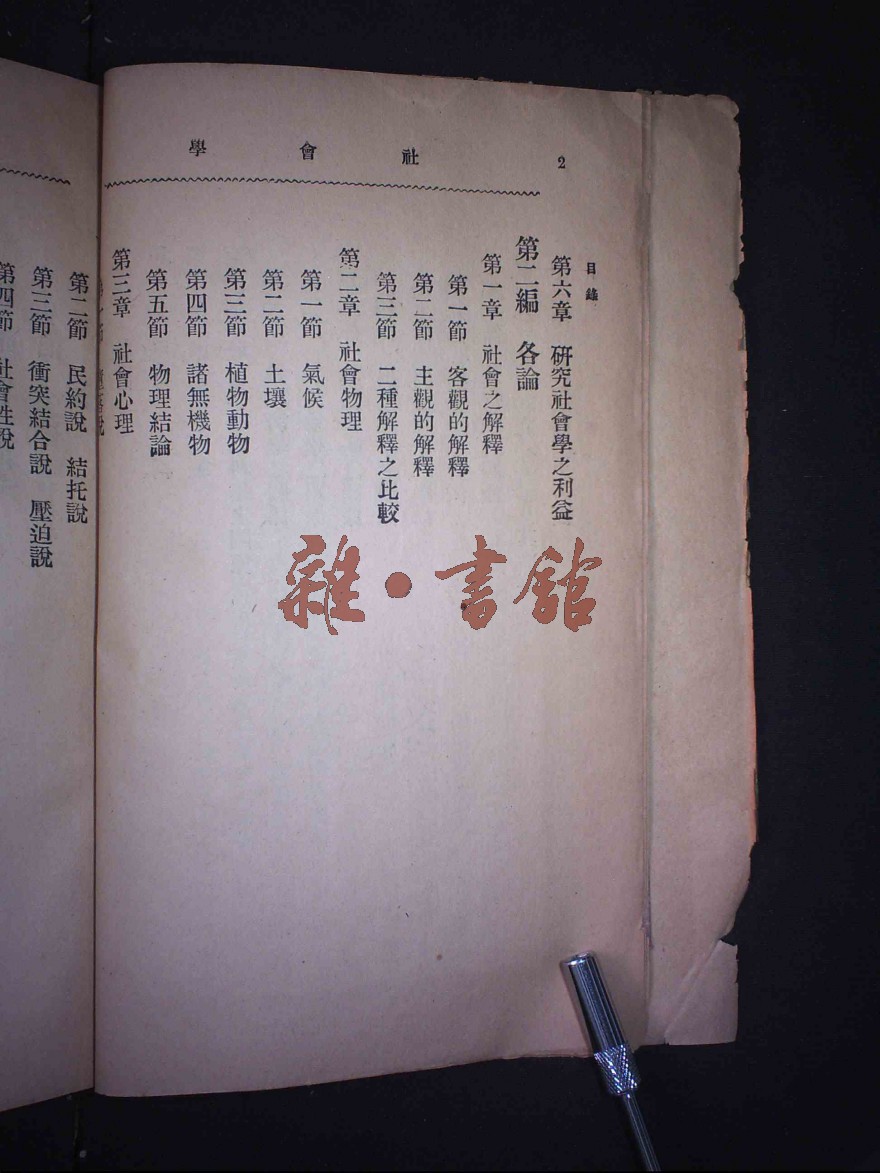 2 社會學
目錄
第六章 研究社會學之利益
第二編 各論
第一章 社會之解釋
第一節 客觀的解釋
第二節 主觀的解釋
第三節 二種解釋之比較
第二章 社會物理
第一節 氣候
第二節 土壤
第三節 植物動物
第四節 諸無機物
第五節 物理結論
第三章 社會心理
第二節 民約說 結托說
第三節 衝突結合說 壓迫說
第四節 社會性說
雜·書館